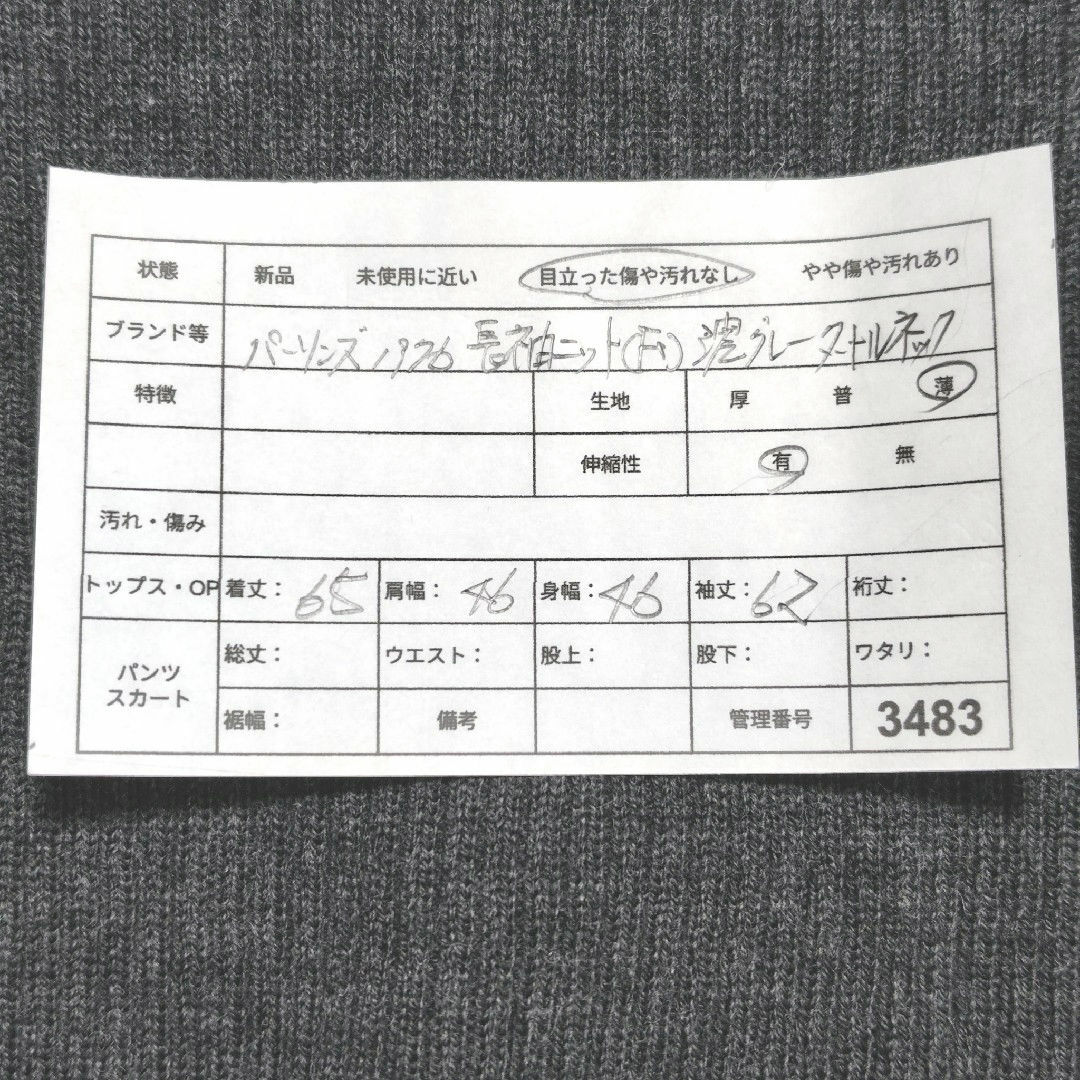 状態 新品 未使用に近い 目立った傷や汚れなし やや傷や汚れあり
ブランド等 パーソンズ 1976 長袖ニット(F) 濃グレー タートルネック
特徴 生地 厚 普 薄
伸縮性 有 無
汚れ・傷み
トップス・OP 着丈: 65 肩幅: 46 身幅: 46 袖丈: 62 裄丈:
パンツ スカート 総丈: ウエスト: 股上: 股下: ワタリ:
裾幅: 備考 管理番号 3483